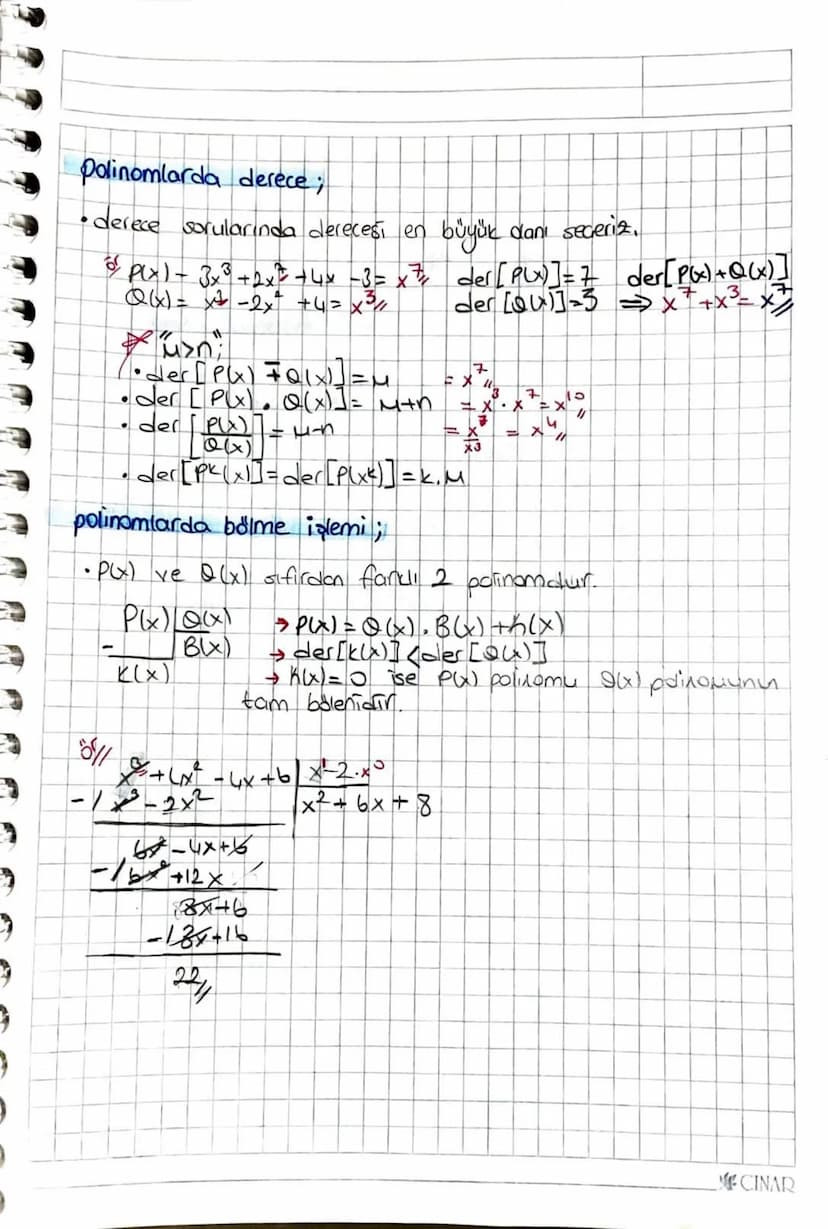 polinomlarda derece;
• derece sorularında derecesi en büyük olanı seçeriz.
ö// P(x) - 3x³ + 2x⁷ + 4x - 3 = x⁷// der[P(x)] = 7 der[P(x) + Q(x)]
Q(x) = x³ - 2x² + 4 = x³// der[Q(x)] = 3 ⇒ x⁷ + x³ = x⁷//
"M>n";
• der[P(x) ∓ Q(x)] = M = x⁷//
• der[P(x) . Q(x)] = M+n = x³ . x⁷ = x¹⁰//
• der[P(x)/Q(x)] = M-n = x⁷/x³ = x⁴//
• der[Pᵏ(x)] = der[P(xᵏ)] = k.M
polinomlarda bölme işlemi;
• P(x) ve Q(x) sıfırdan farklı 2 polinomdur.
P(x) | Q(x) → P(x) = Q(x) . B(x) + K(x)
- B(x) → der[K(x)] < der[Q(x)]
K(x) → K(x) = 0 ise P(x) polinomu Q(x) polinomunun
tam bölenidir.
ör//
x³ + 4x² - 4x + 6 | x¹ - 2 . x⁰
- / x³ - 2x² x² + 6x + 8
6x² - 4x + 6
- / 6x² + 12x
8x + 6
- / 8x + 16
22//
ÇINAR